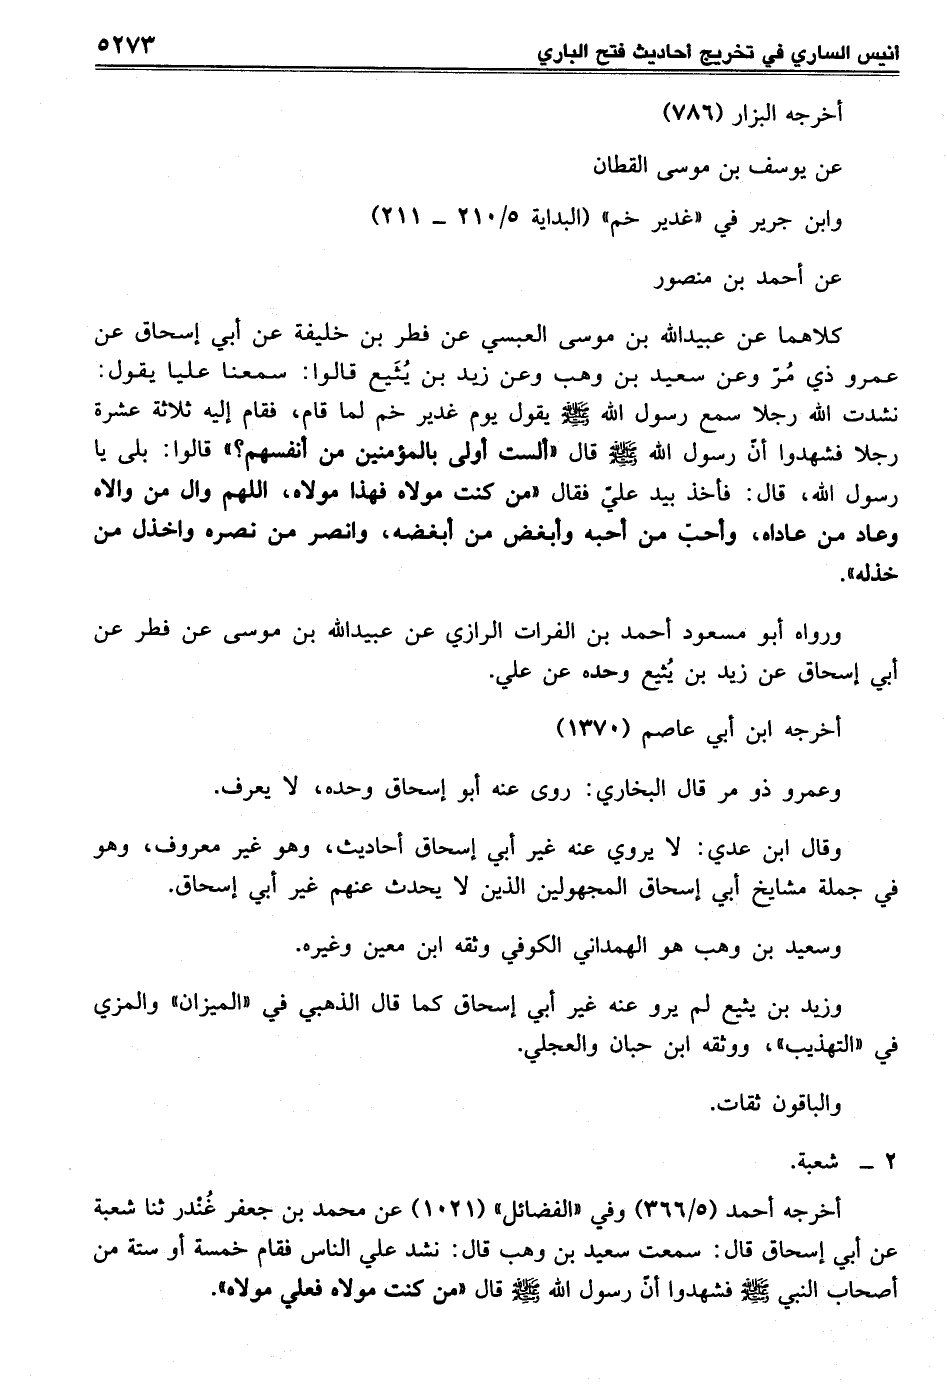 انيس الساري في تخريج أحاديث فتح الباري
٥٢٧٣
أخرجه البزار (٧٨٦)
عن يوسف بن موسى القطان
وابن جرير في «غدير خم» (البداية ٢١٠/٥ ـ ٢١١)
عن أحمد بن منصور
كلاهما عن عبيدالله بن موسى العبسي عن فطر بن خليفة عن أبي إسحاق عن
عمرو ذي مُرّ وعن سعيد بن وهب وعن زيد بن يُثَيع قالوا: سمعنا عليا يقول:
نشدت الله رجلا سمع رسول الله ﷺ يقول يوم غدير خم لما قام، فقام إليه ثلاثة عشرة
رجلا فشهدوا أنّ رسول الله ﷺ قال «ألست أولى بالمؤمنين من أنفسهم؟» قالوا: بلى يا
رسول الله، قال: فأخذ بيد عليّ فقال «من كنت مولاه فهذا مولاه، اللهم وال من والاه
وعاد من عاداه، وأحبّ من أحبه وأبغض من أبغضه، وانصر من نصره واخذل من
خذله».
ورواه أبو مسعود أحمد بن الفرات الرازي عن عبيدالله بن موسى عن فطر عن
أبي إسحاق عن زيد بن يُثيع وحده عن علي.
أخرجه ابن أبي عاصم (١٣٧٠)
وعمرو ذو مر قال البخاري: روى عنه أبو إسحاق وحده، لا يعرف.
وقال ابن عدي: لا يروي عنه غير أبي إسحاق أحاديث، وهو غير معروف، وهو
في جملة مشايخ أبي إسحاق المجهولين الذين لا يحدث عنهم غير أبي إسحاق.
وسعيد بن وهب هو الهمداني الكوفي وثقه ابن معين وغيره.
وزيد بن يثيع لم يرو عنه غير أبي إسحاق كما قال الذهبي في «الميزان» والمزي
في «التهذيب»، ووثقه ابن حبان والعجلي.
والباقون ثقات.
٢ ـ شعبة.
أخرجه أحمد (٣٦٦/٥) وفي «الفضائل» (١٠٢١) عن محمد بن جعفر غُنْدر ثنا شعبة
عن أبي إسحاق قال: سمعت سعيد بن وهب قال: نشد علي الناس فقام خمسة أو ستة من
أصحاب النبي ﷺ فشهدوا أنّ رسول الله ﷺ قال «من كنت مولاه فعلي مولاه».